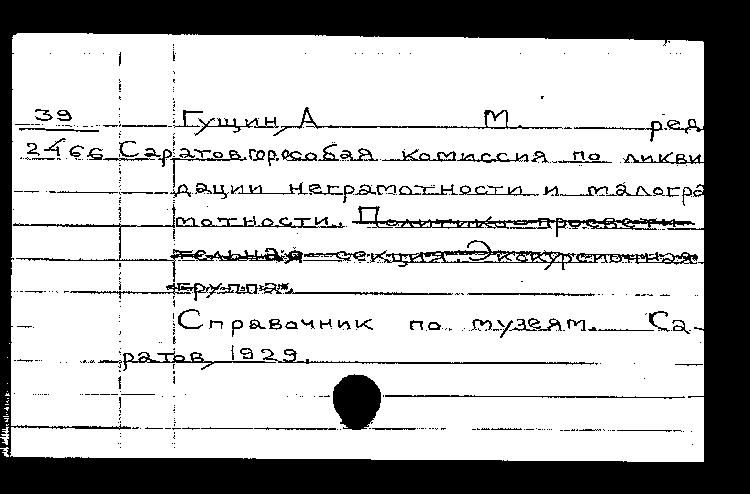 39 Гущин, А М. ред
2466 Саратов. горособая комиссия по ликви
дации неграмотности и малогра
мотности. Политико-просвети-
тельная секция. Экскурсионная
группа.
Справочник по музеям. Са-
ратов, 1929.